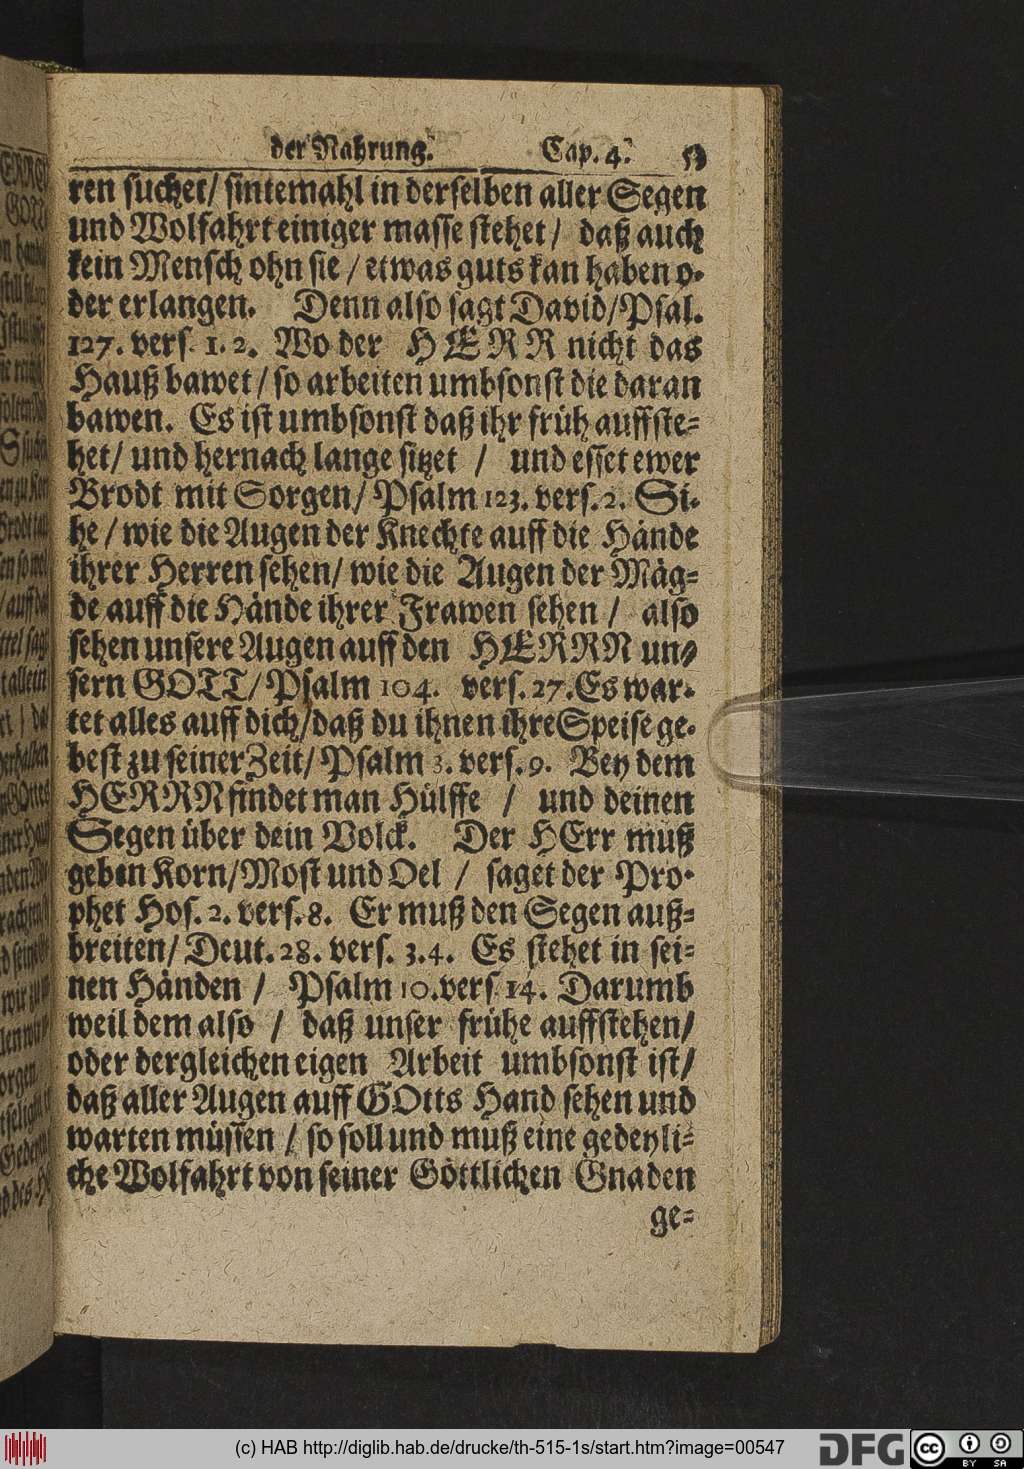 der Nahrung. Cap. 4.
ren suchet/ sintemahl in derselben aller Segen
und Wolfahrt einiger masse stehet/ daß auch
kein Mensch ohn sie/ etwas guts kan haben o-
der erlangen. Denn also sagt David/Psal.
127. vers. 1. 2. Wo der HERR nicht das
Hauß bawet/ so arbeiten umbsonst die daran
bawen. Es ist umbsonst daß ihr früh auffste-
het/ und hernach lange sitzet / und esset ewer
Brodt mit Sorgen/ Psalm 123. vers. 2. Si-
he/ wie die Augen der Knechte auff die Hände
ihrer Herren sehen/ wie die Augen der Mäg-
de auff die Hände ihrer Frawen sehen / also
sehen unsere Augen auff den HERRN un-
sern GOTT/ Psalm 104. vers. 27. Es war-
tet alles auff dich/daß du ihnen ihre Speise ge-
best zu seiner Zeit/ Psalm 3. vers. 9. Bey dem
HERRN findet man Hülffe / und deinen
Segen über dein Volck. Der HErr muß
geben Korn/Most und Oel / saget der Pro-
phet Hos. 2. vers. 8. Er muß den Segen auß-
breiten/ Deut. 28. vers. 3.4. Es stehet in sei-
nen Händen / Psalm 10. vers 14. Darumb
weil dem also / daß unser frühe auffstehen/
oder dergleichen eigen Arbeit umbsonst ist/
daß aller Augen auff GOtts Hand sehen und
warten müssen / so soll und muß eine gedeyli-
che Wolfahrt von seiner Göttlichen Gnaden
ge-
(c) HAB http://diglib.hab.de/drucke/th-515-1s/start.htm?image=00547
DFG
cc BY SA